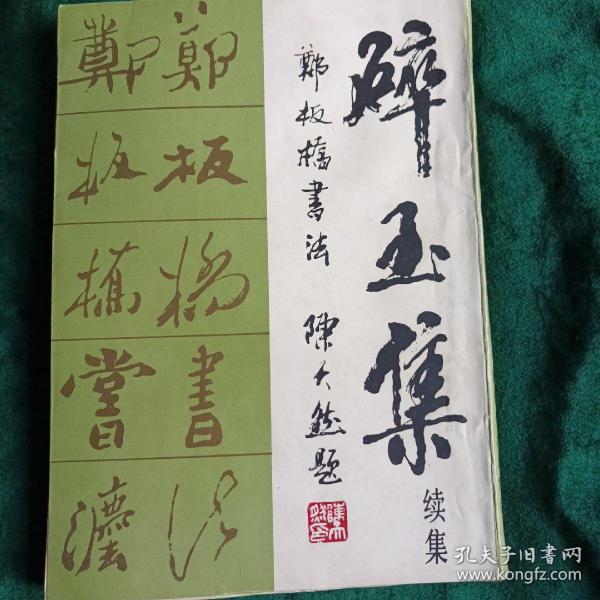 碎玉集
续集
鄭板橋書法 陳大 题
鄭板橋書法
鄭板橋 灋
孔夫子旧书网
www.kongfz.com